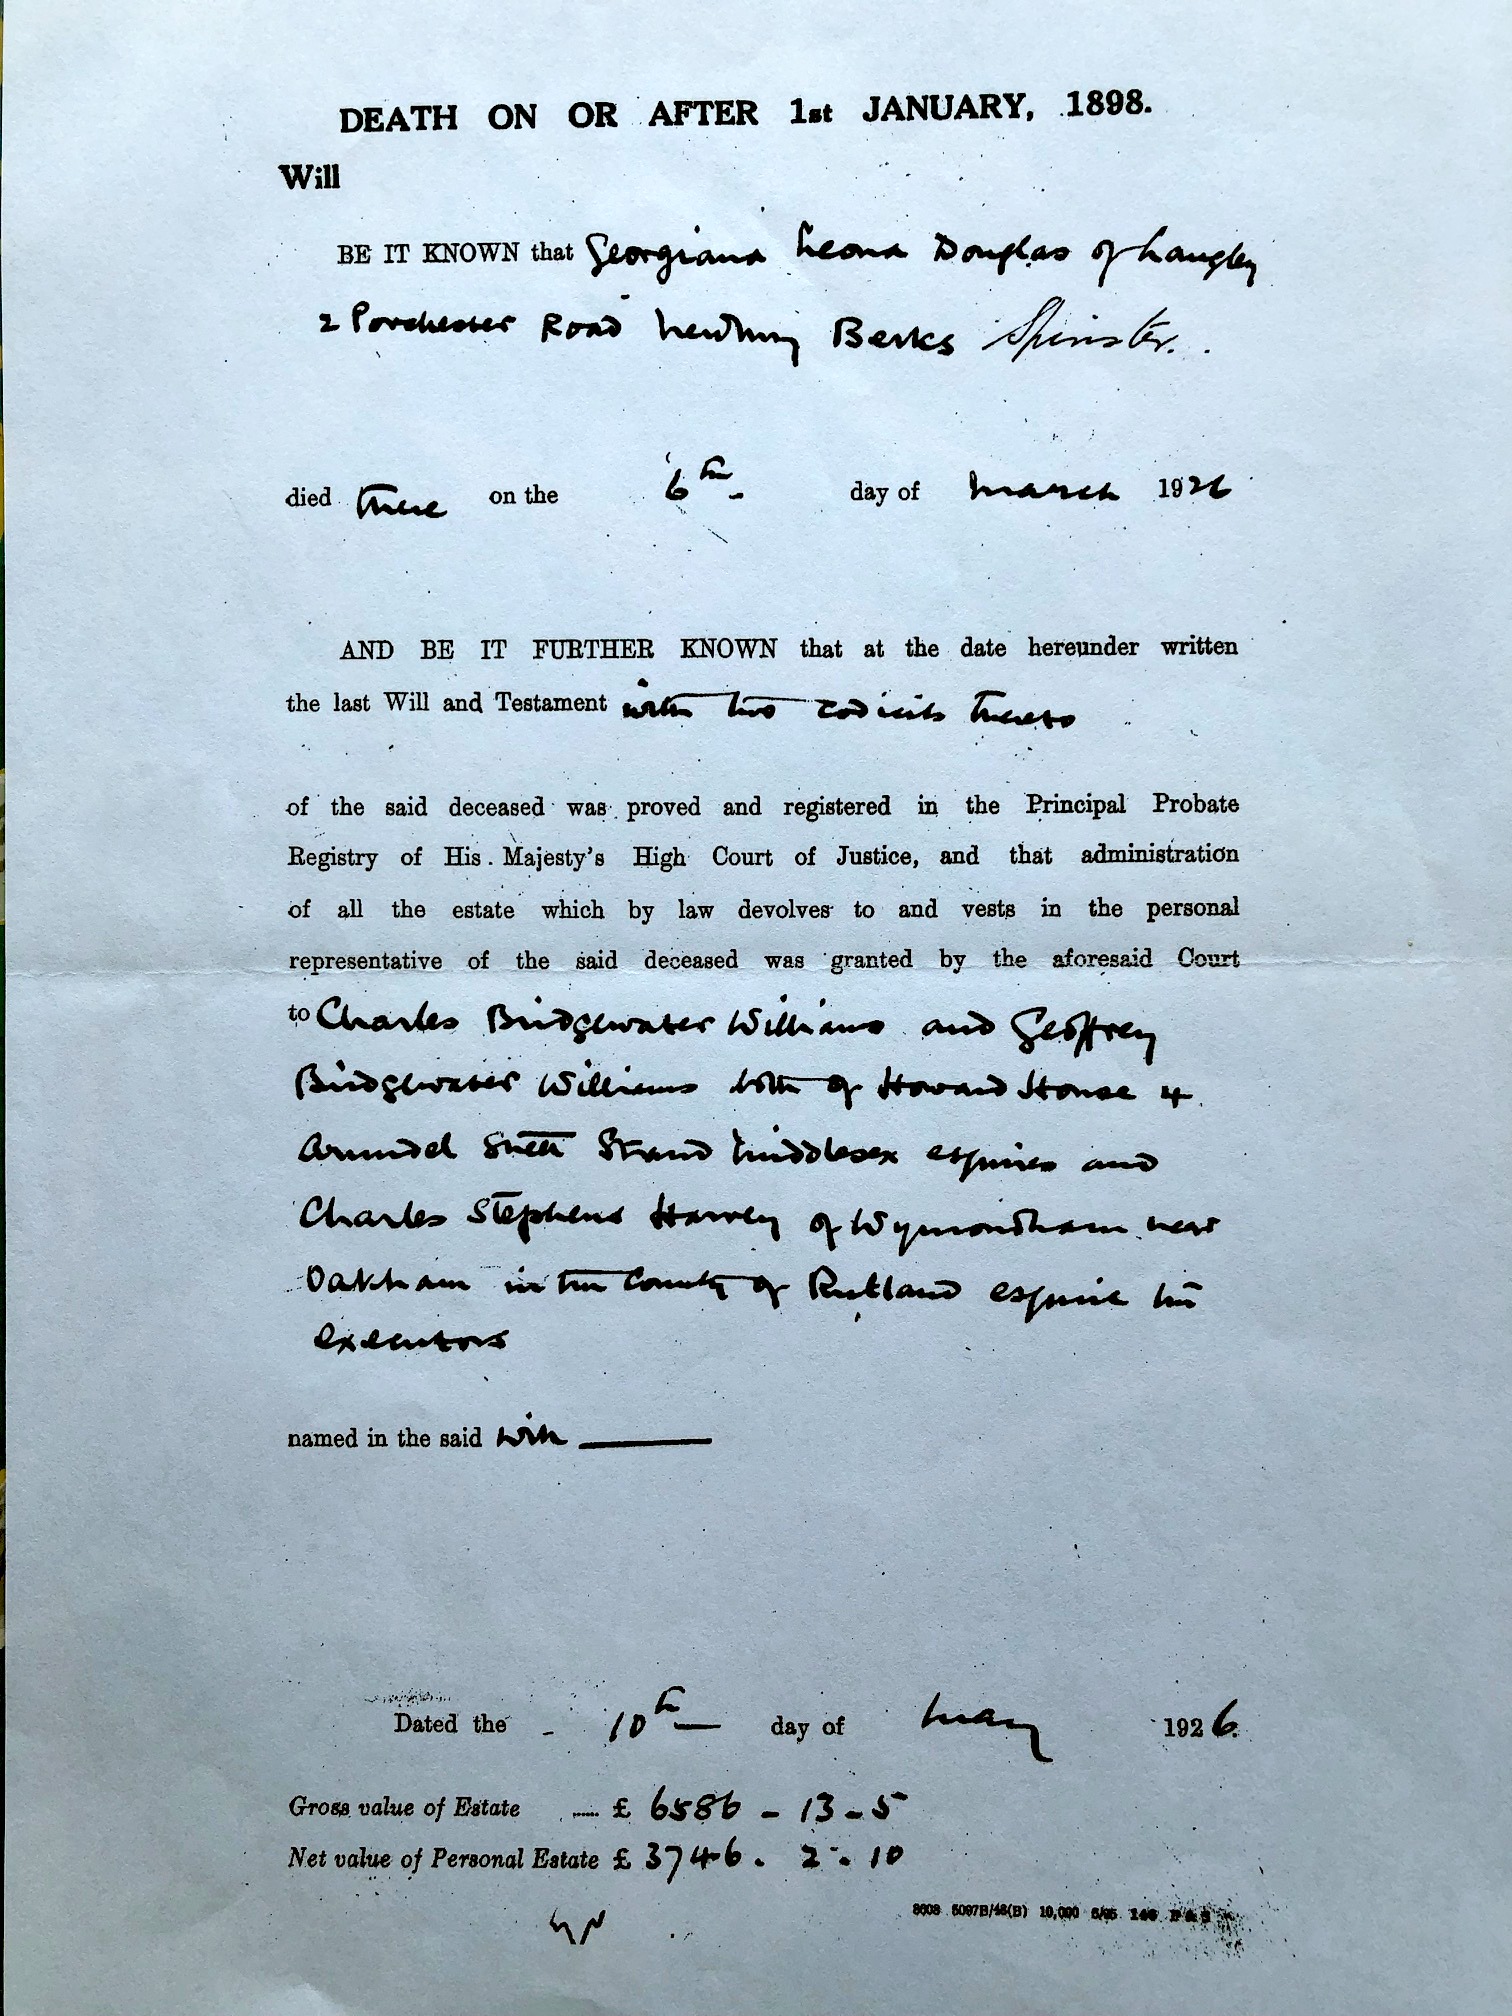 DEATH ON OR AFTER 1st JANUARY, 1898.
Will
BE IT KNOWN that Georgiana Leona Douglas of Langley
2 Porchester Road Newbury Berks Spinster.
died there on the 6th day of March 1926
AND BE IT FURTHER KNOWN that at the date hereunder written
the last Will and Testament with two codicils thereto
of the said deceased was proved and registered in the Principal Probate
Registry of His Majesty's High Court of Justice, and that administration
of all the estate which by law devolves to and vests in the personal
representative of the said deceased was granted by the aforesaid Court
to Charles Bridgewater Williams and Geoffrey
Bridgewater Williams both of Howard House 4
Arundel Street Strand Middlesex esquires and
Charles Stephens Harvey of Wymondham near
Oakham in the County of Rutland esquire the
executors
named in the said will
Dated the 10th day of May 1926.
Gross value of Estate ...... £ 6586 - 13 - 5
Net value of Personal Estate £ 3746. 2. 10
8608 5097B/48(B) 10,000